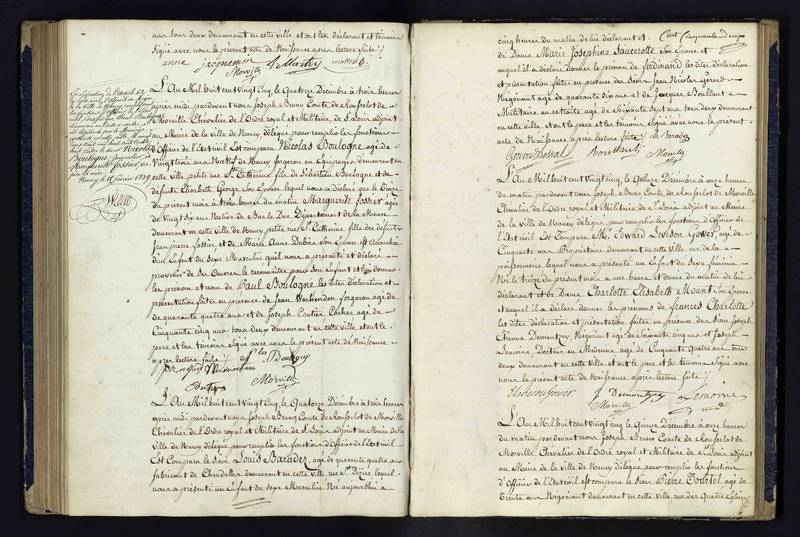 aux Sous deux demeurant en cette ville, et ont les déclarant et témoins
Signé avec nous le présent acte de Naissance après lecture faite /.
jacquemin Morville
L'An Mil huit cent Vingt Cinq, le Quatorze Décembre à trois heures
après midi pardevant nous Joseph Bruno Comte de Rousselot de
Morville Chevalier de l'Ordre royal et Militaire de St Louis adjoint
au Maire de la Ville de Nancy délégué pour remplir les fonctions
d'Officier de l'Etat civil Est comparu Nicolas Boulogne agé de
Vingt trois ans Natif de Nancy forgeron en Equipage demeurant en
cette ville petite rue Ste Catherine, fils de Sébastien Boulogne et de
défunte Elisabeth George Son Epouse lequel nous a déclaré que le
du présent mois à trois heures du matin Marguerite Fossier agée
de Vingt Six ans Native de Bar le Duc Département de la Meuse
demeurant en cette Ville de Nancy petite rue Ste Catherine fille des défunts
Jean pierre Fossier et de Marie Anne Son Epouse est accouchée
d'un Enfant du Sexe Masculin qu'il nous a présenté et déclaré
le reconnaitre pour Son Enfant et lui donner
le prénom et nom de Paul Boulogne, les dites Déclaration et
présentation faites en présence de Jean forgeron agé de
de quarante quatre ans et de Joseph Cocher agé de
Cinquante cinq ans tous deux demeurant en cette ville et ont le
pere et les témoins Signé avec nous le présent acte de Naissance
après lecture faite /.
Boulogne
Morville
L'An Mil huit cent Vingt Cinq, le Quatorze Décembre à trois heures
après midi pardevant nous Joseph Bruno Comte de Rousselot de Morville
Chevalier de l'Ordre royal et Militaire de St Louis adjoint au Maire de la
Ville de Nancy délégué pour remplir les fonctions d'Officier de l'Etat civil
Est Comparu le Sieur Louis Baradez, agé de quarante quatre ans
fabricant de Chandelles demeurant en cette ville, rue St Dizier lequel
nous a présenté un Enfant du Sexe Masculin Né aujourd'hui à
Boulogne
Marguerite Fossier
Nancy le février 1839
Cent Cinquante deux
cinq heures du matin de lui déclarant et
de Dame Marie Josephine Saucerotte Son Epouse et
auquel il a déclaré donner le prénom de Ferdinand les dites déclaration
et présentation faites en présence des Sieurs Jean Nicolas Gérard
Négociant agé de quarante Six ans et de Jacques
Militaire en retraite agé de Soixante Sept ans tous deux demeurant
en cette ville et ont le pere et les témoins Signé avec nous le présent
acte de Naissance après lecture faite
Baradez
Morville
L'An Mil huit cent Vingt Cinq, le Quinze Décembre à onze heures
du matin, pardevant nous Joseph Bruno Comte de Rousselot de Morville
Chevalier de l'Ordre royal et Militaire de St Louis adjoint au Maire
de la Ville de Nancy délégué pour remplir les fonctions d'Officier de
l'Etat civil Est Comparu Mr Edward Leveson Gower agé de
Cinquante ans Propriétaire demeurant en cette ville rue de la
poissonnerie lequel nous a présenté un Enfant du Sexe féminin
Né le treize du présent mois à une heure et demie du matin de lui
déclarant et de Dame Charlotte Elisabeth Mount Son Epouse
et auquel il a déclaré donner les prénoms de frances Charlotte
les dites déclaration et présentation faites en présence des Sieurs Joseph
Etienne Demontzey, Négociant agé de Soixante cinq ans et Joseph
Lemoine, Docteur en Médecine agé de Cinquante Quatre ans tous
deux demeurant en cette ville et ont le pere et les témoins Signé avec
nous le présent acte de Naissance après lecture faite /.
Demontzey Lemoine
Morville
L'An Mil huit cent Vingt Cinq, le Quinze Décembre à onze heures
du matin pardevant nous Joseph Bruno Comte de Rousselot de
Morville Chevalier de l'Ordre royal et Militaire de St Louis adjoint
au Maire de la Ville de Nancy délégué pour remplir les fonctions
d'Officier de l'Etat civil est comparu le Sieur Pierre agé de
Trente ans Négociant demeurant en cette Ville rue des Quatre Eglises